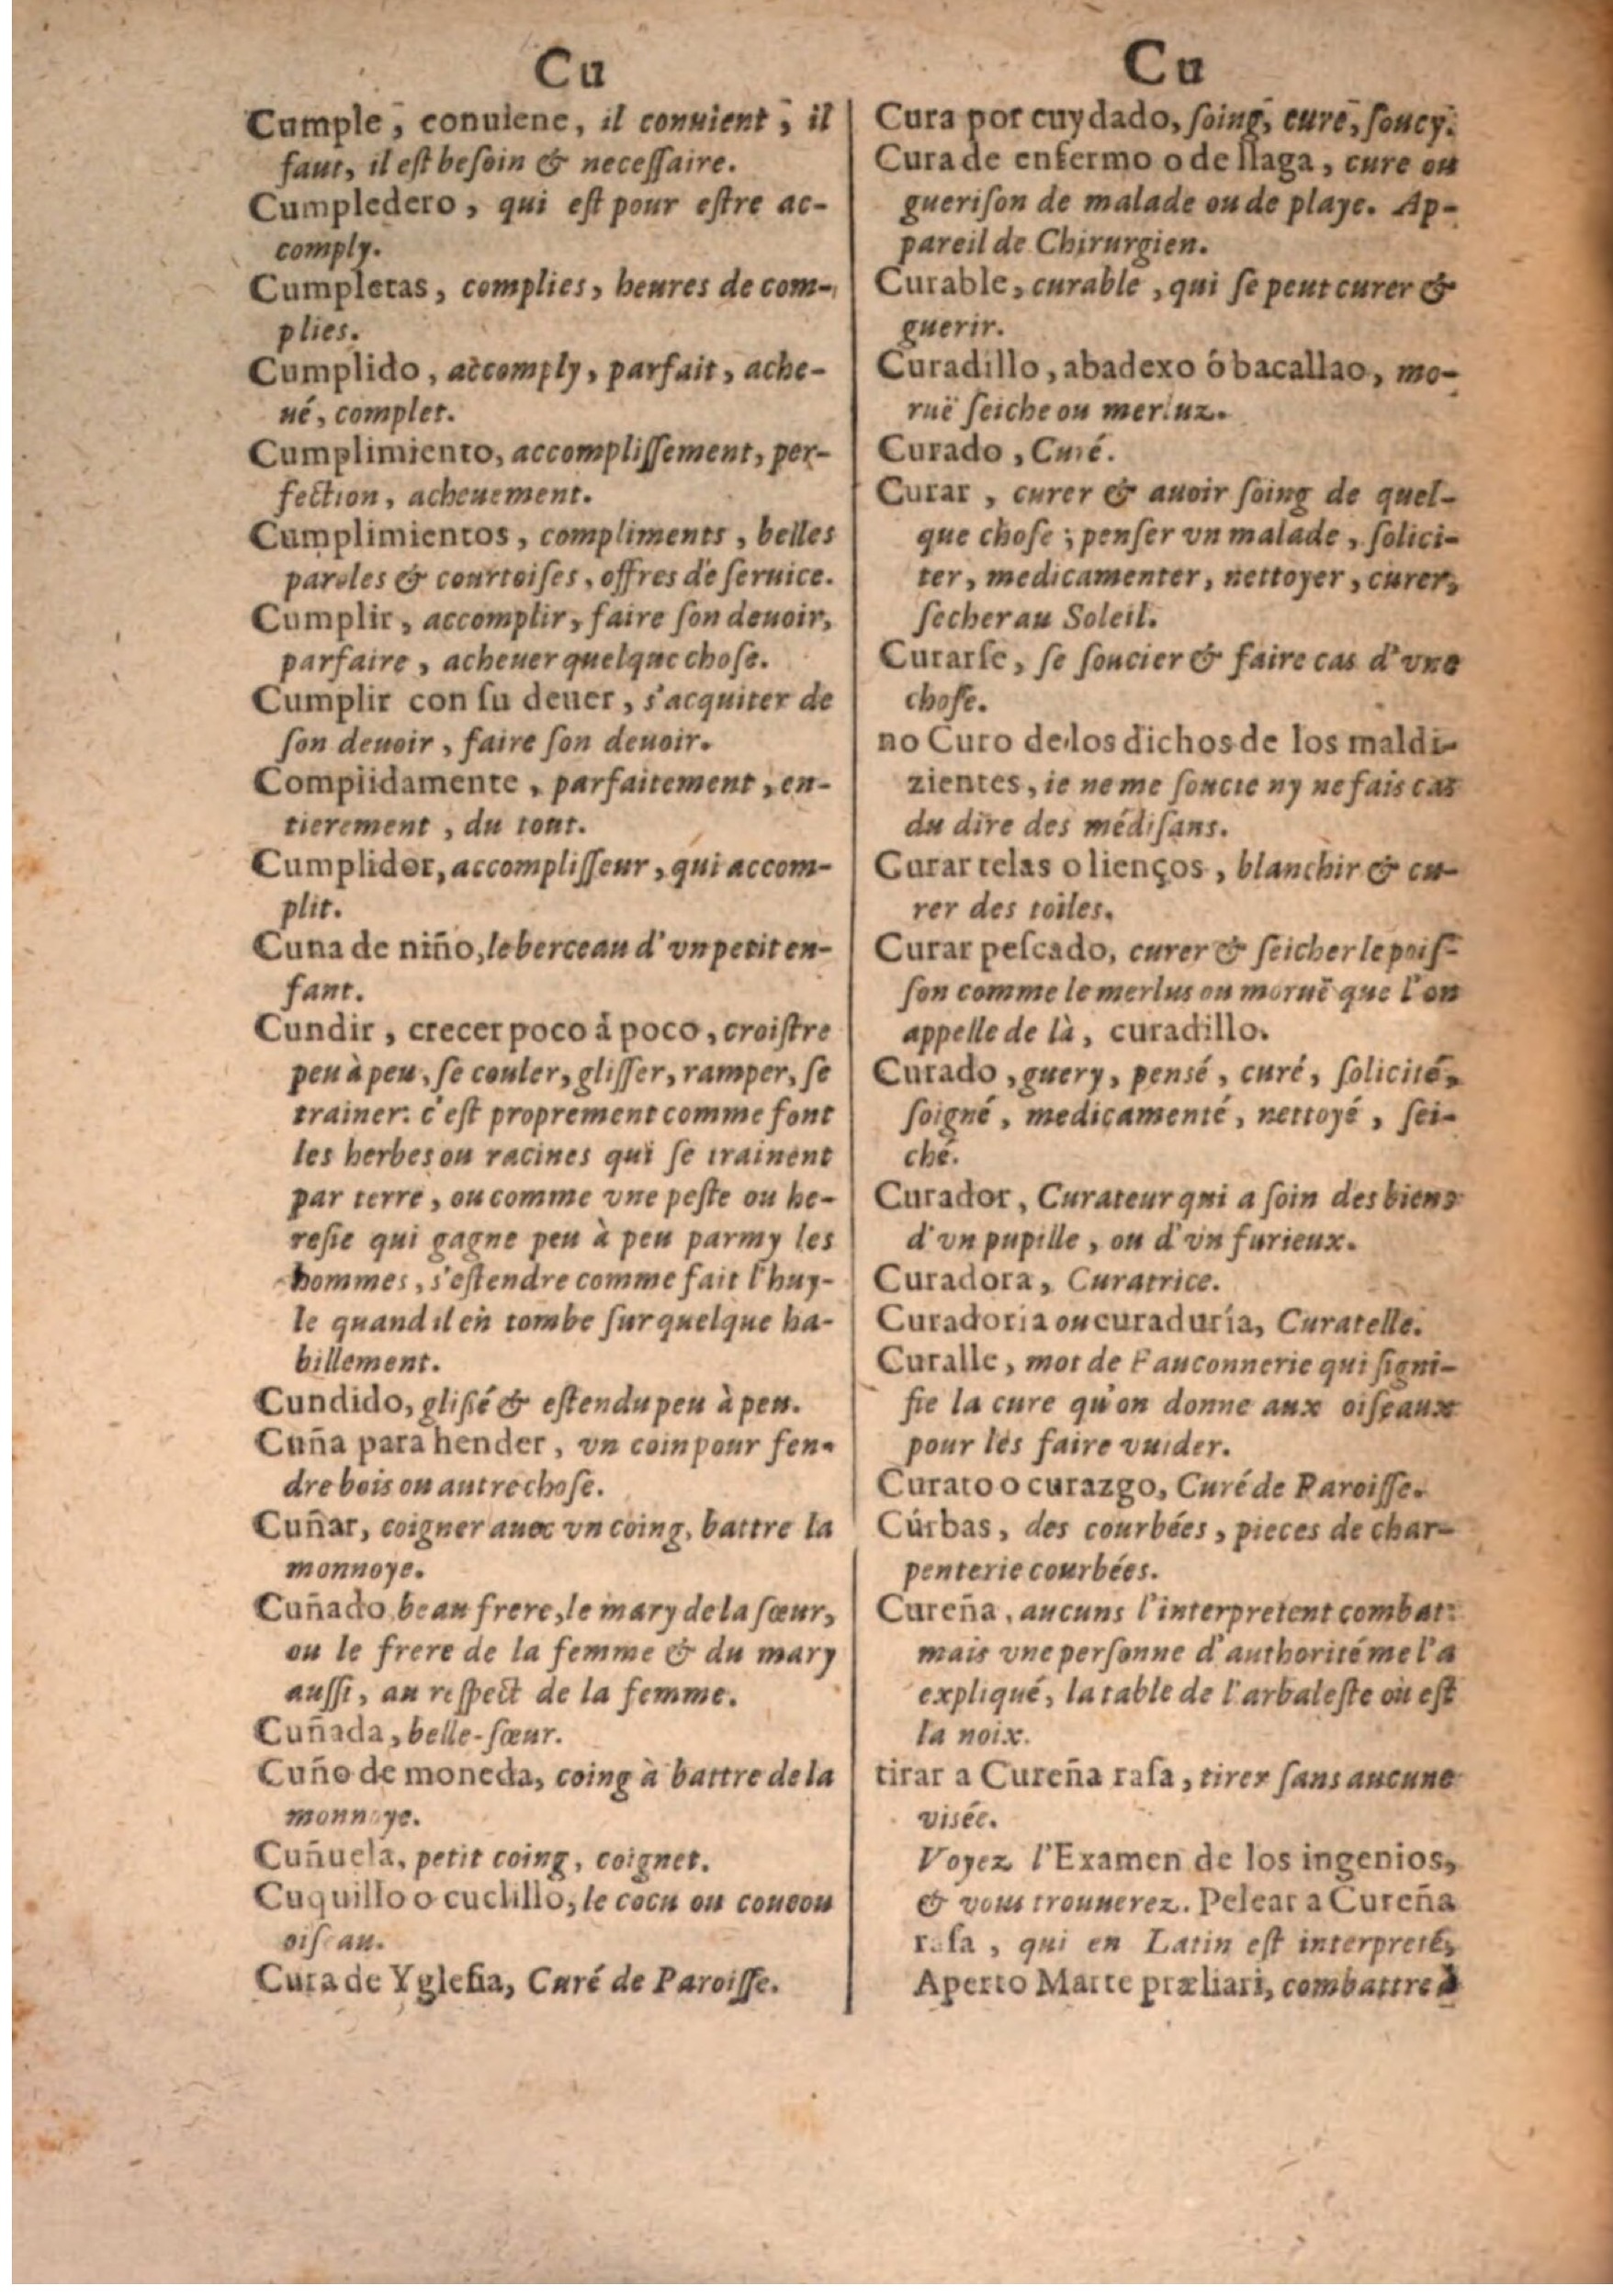 Cu
Cumple, conuiene, il conuient, il
faut, il est besoin & necessaire.
Cumpledero, qui est pour estre ac-
comply.
Cumpletas, complies, heures de com-
plies.
Cumplido, accomply, parfait, ache-
ué, complet.
Cumplimiento, accomplissement, per-
fection, acheuement.
Cumplimientos, compliments, belles
paroles & courtoises, offres de seruice.
Cumplir, accomplir, faire son deuoir,
parfaire, acheuer quelque chose.
Cumplir con su deuer, s'acquiter de
son deuoir, faire son deuoir.
Complidamente, parfaitement, en-
tierement, du tout.
Cumplidor, accomplisseur, qui accom-
plit.
Cuna de niño, le berceau d'vn petit en-
fant.
Cundir, crecer poco á poco, croistre
peu à peu, se couler, glisser, ramper, se
trainer: c'est proprement comme font
les herbes ou racines qui se trainent
par terre, ou comme vne peste ou he-
resie qui gagne peu à peu parmy les
hommes, s'estendre comme fait l'huy-
le quand il en tombe sur quelque ha-
billement.
Cundido, glissé & estendu peu à peu.
Cuña para hender, vn coin pour fen-
dre bois ou autre chose.
Cuñar, coigner auec vn coing, battre la
monnoye.
Cuñado beau frere, le mary de la sœur,
ou le frere de la femme & du mary
aussi, au respect de la femme.
Cuñada, belle-sœur.
Cuño de moneda, coing à battre de la
monnoye.
Cuñuela, petit coing, coignet.
Cuquillo o cuclillo, le cocu ou coucou
oiseau.
Cura de Yglesia, Curé de Paroisse.
Cu
Cura por cuydado, soing, cure, soucy.
Cura de enfermo o de llaga, cure ou
guerison de malade ou de playe. Ap-
pareil de Chirurgien.
Curable, curable, qui se peut curer &
guerir.
Curadillo, abadexo ó bacallao, mo-
ruë seiche ou merluz.
Curado, Curé.
Curar, curer & auoir soing de quel-
que chose; penser vn malade, solici-
ter, medicamenter, nettoyer, curer,
secher au Soleil.
Curarse, se soucier & faire cas d'vne
chose.
no Curo de los dichos de los maldi-
zientes, ie ne me soucie ny ne fais cas
du dire des médisans.
Curar telas o lienços, blanchir & cu-
rer des toiles.
Curar pescado, curer & seicher le pois-
son comme le merlus ou moruë que l'on
appelle de là, curadillo.
Curado, guery, pensé, curé, solicité,
soigné, medicamenté, nettoyé, sei-
ché.
Curador, Curateur qui a soin des biens
d'vn pupille, ou d'vn furieux.
Curadora, Curatrice.
Curadoria ou curaduría, Curatelle.
Curalle, mot de Fauconnerie qui signi-
fie la cure qu'on donne aux oiseaux
pour les faire vuider.
Curato o curazgo, Curé de Paroisse.
Cúrbas, des courbées, pieces de char-
penterie courbées.
Cureña, aucuns l'interpretent combat:
mais vne personne d'authorité me l'a
expliqué, la table de l'arbaleste où est
la noix.
tirar a Cureña rasa, tirer sans aucune
visée.
Voyez l'Examen de los ingenios,
& vous trouuerez. Pelear a Cureña
rasa, qui en Latin est interpreté,
Aperto Marte præliari, combattre à